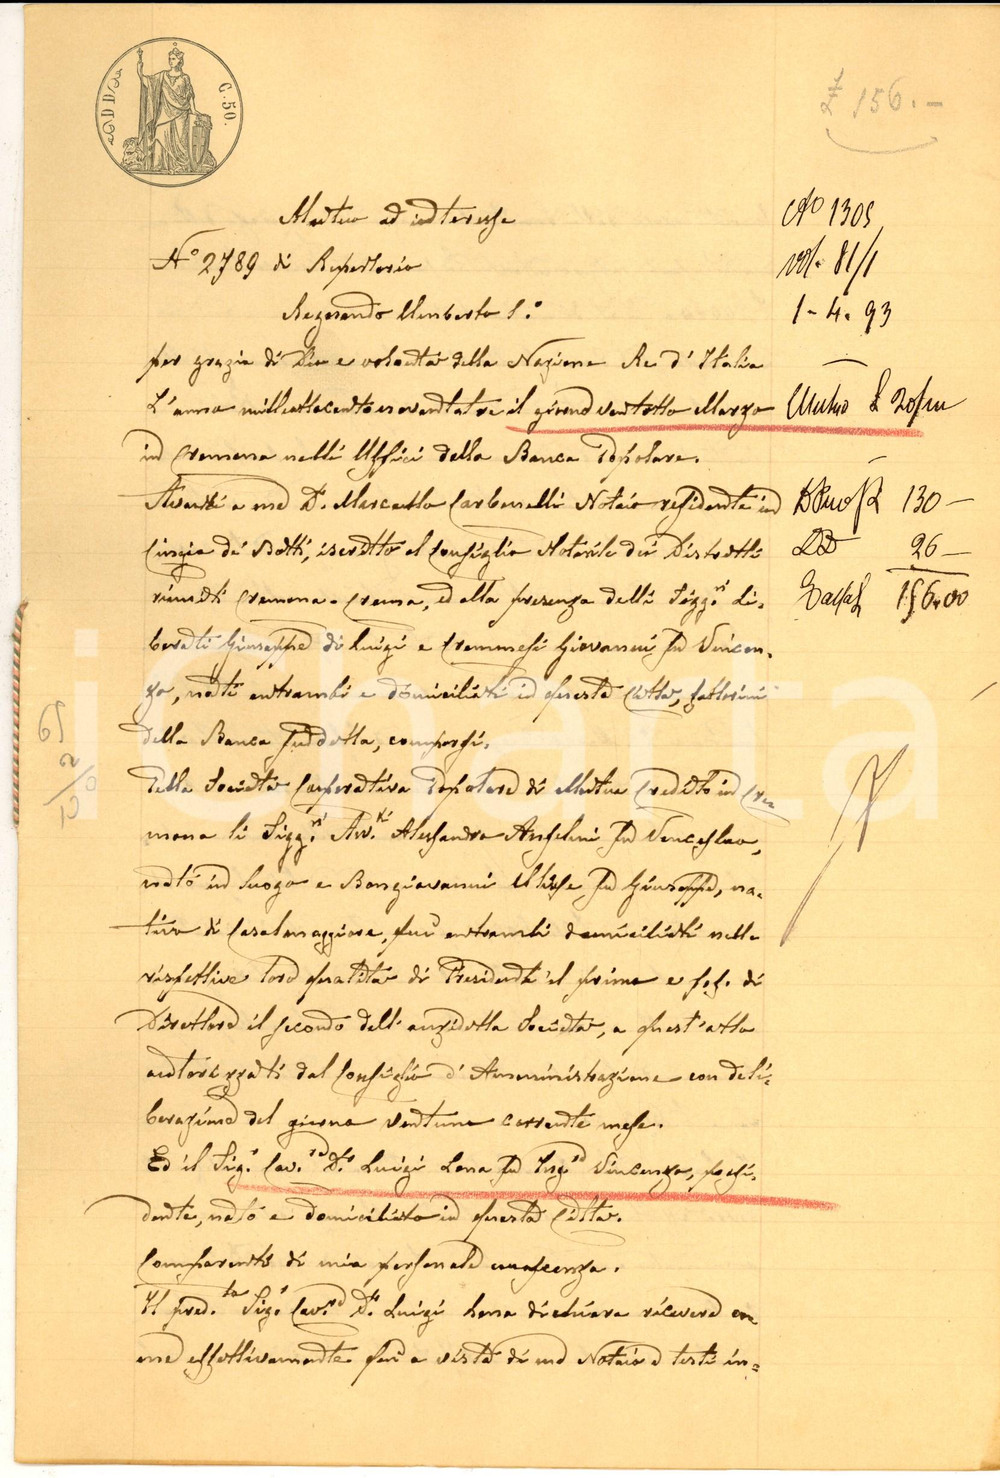 C. 50.
£ 156.-
Mutuo ad interesse
N.° 2789 di Repertorio
Regnando Umberto I.°
per grazia di Dio e volontà della Nazione Re d'Italia
L'anno milleottocentonovantatre il giorno ventotto Marzo
in Cremona nelli Uffici della Banca Popolare.
Avanti a me D.r Marcello Carbonelli Notaio residente in
Cingia de' Botti, iscritto al Consiglio Notarile dei Distretti
riuniti Cremona-Crema, ed alla presenza delli Sigg.ri Li-
berati Giuseppe di Luigi e Cremonesi Giovanni fu Vincen-
zo, nati entrambi e domiciliati in questa Città, fattorini
della Banca suddetta, comparsi.
Della Società Cooperativa Popolare di Mutuo Credito in Cre-
mona li Sigg.ri Avv.ti Alessandro Anselmi fu Venceslao,
nato in luogo e Bongiovanni Ulisse fu Giuseppe, na-
tivo di Casalmaggiore, qui entrambi domiciliati nelle
rispettive loro qualità di Presidente il primo e f.f. di
Direttore il secondo dell'anzidetta Società, a quest'atto
autorizzati dal Consiglio d'Amministrazione con deli-
berazione del giorno ventuno corrente mese.
Ed il Sig.r Cav.re D.r Luigi Lena fu Ing.re Vincenzo, possi-
dente, nato e domiciliato in questa Città.
Comparenti di mia personale conoscenza.
Il pred.to Sig.r Cav.re D.r Luigi Lena dichiara ricevere co-
me effettivamente qui a vista di me Notaio e testi in-
N° 1305
vol. 81/1
1-4-93
Mutuo £
130 -
26 -
156.00